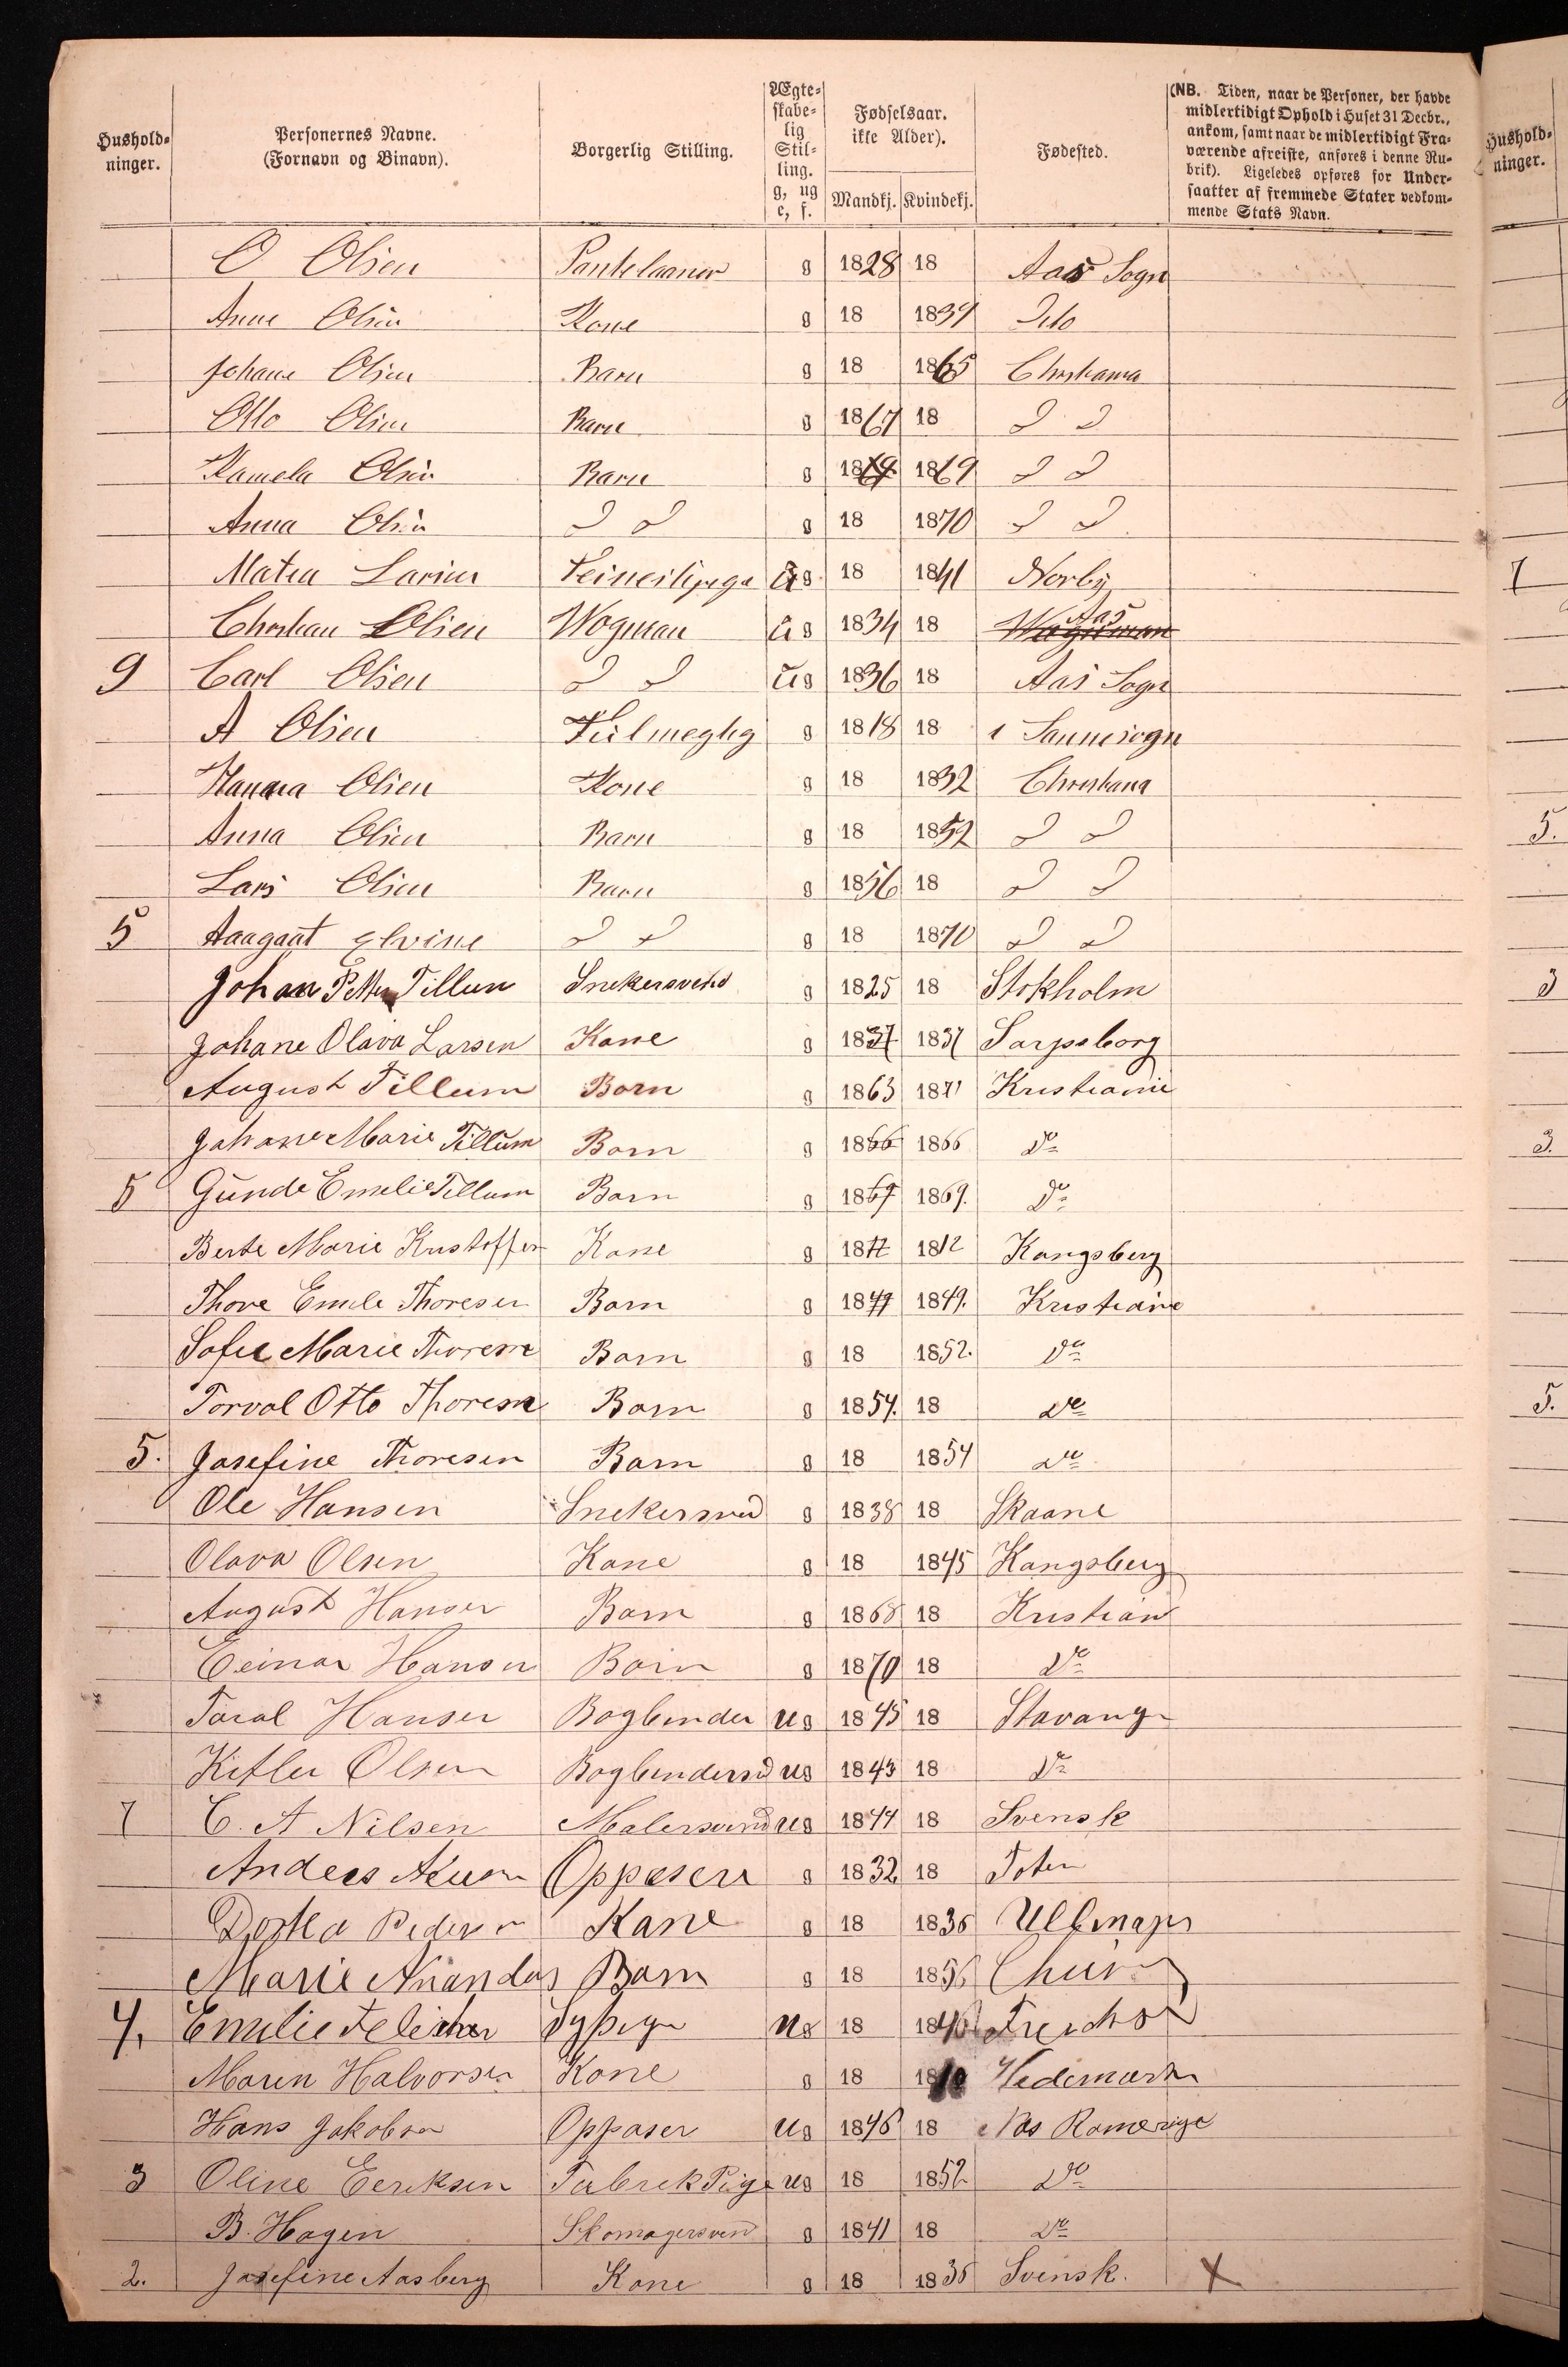 Hushold-ninger. Personernes Navne. (Fornavn og Binavn). Borgerlig Stilling. Ægte-skabe-lig Stil-ling. g, ug e, f. Fødselsaar. ikke Alder). Mandkj. Kvindekj. Fødested. (NB. Tiden, naar de Personer, der havde midlertidigt Ophold i Huset 31 Decbr., ankom, samt naar de midlertidigt Fra-værende afreiste, anføres i denne Ru-brik). Ligeledes opføres for Under-saatter af fremmede Stater vedkom-mende Stats Navn. Hushold-ninger.
O Olsen Pantelaaner g 1828 18 Aas Sogn
Anne Olsen Kone g 18 1839 Dito
Johane Olsen Barn g 18 1865 Christiania
Otto Olsen Barn g 1867 18 D D
Kamela Olsen Barn g 1869 1869 D D
Anna Olsen D D g 18 1870 D D
Matea Larsen ug 18 1841 Norby 7
Christian Olsen Wogman ug 1834 18 Aas
9 Carl Olsen D D ug 1836 18 Aas Sogn
A Olsen g 1818 18 Sannesogn
Hanna Olsen Kone g 18 1832 Christiana
Anna Olsen Barn g 18 1852 D D 5.
Lars Olsen Barn g 1856 18 D D
5 Aaagaat Elvine D D g 18 1870 D D
Johan Petter Tillum Snekersvend g 1825 18 Stokholm 3
Johane Olava Larsen Kone g 1837 1837 Sarpsborg
August Tillum Born g 1863 18 Kristianie
Johane Marie Tillum Born g 1866 1866 Do 3.
5 Gunda Emelie Tillum Born g 1869 1869. Do
Berte Marie Kristoffer Kone g 18 1812 Kongsberg
Thore Emele Thoresen Born g 1849 1849. Kristiane
Sofie Marie Thoresen Born g 18 1852. Do
Torval Otto Thoresen Born g 1854. 18 Do 5.
5. Josefine Thoresen Born g 18 1854 Do
Ole Hansen Snekersvend g 1838 18 Skaane
Olava Olsen Kone g 18 1845 Kongsberg
August Hansen Born g 1868 18 Kristian
Eeinar Hansen Born g 1870 18 Do
Taral Hansen Bogbinder ug 1845 18 Stavang
Kitler Olsen Bogbindersvd ug 1843 18 Do
7 C. A Nilsen Malersvend ug 1844 18 Svensk
Andees g 1832 18 Toten
Dortea Pedersen Kane g 18 1836
Marie Amandas Barn g 18 1856
4. Emilie Sypige ug 18 184
Maren Halvorsen Kone g 18 1810 Hedemarken
Hans Jakobsen Oppaser ug 1846 18 Nas Romerige
3 Oline Eeriksen Fabrek Pige ug 18 1852 Do
B. Hagen Skomagersvend g 1841 18 Do
2. Josefine Aasberg Kone g 18 1836 Svensk. X